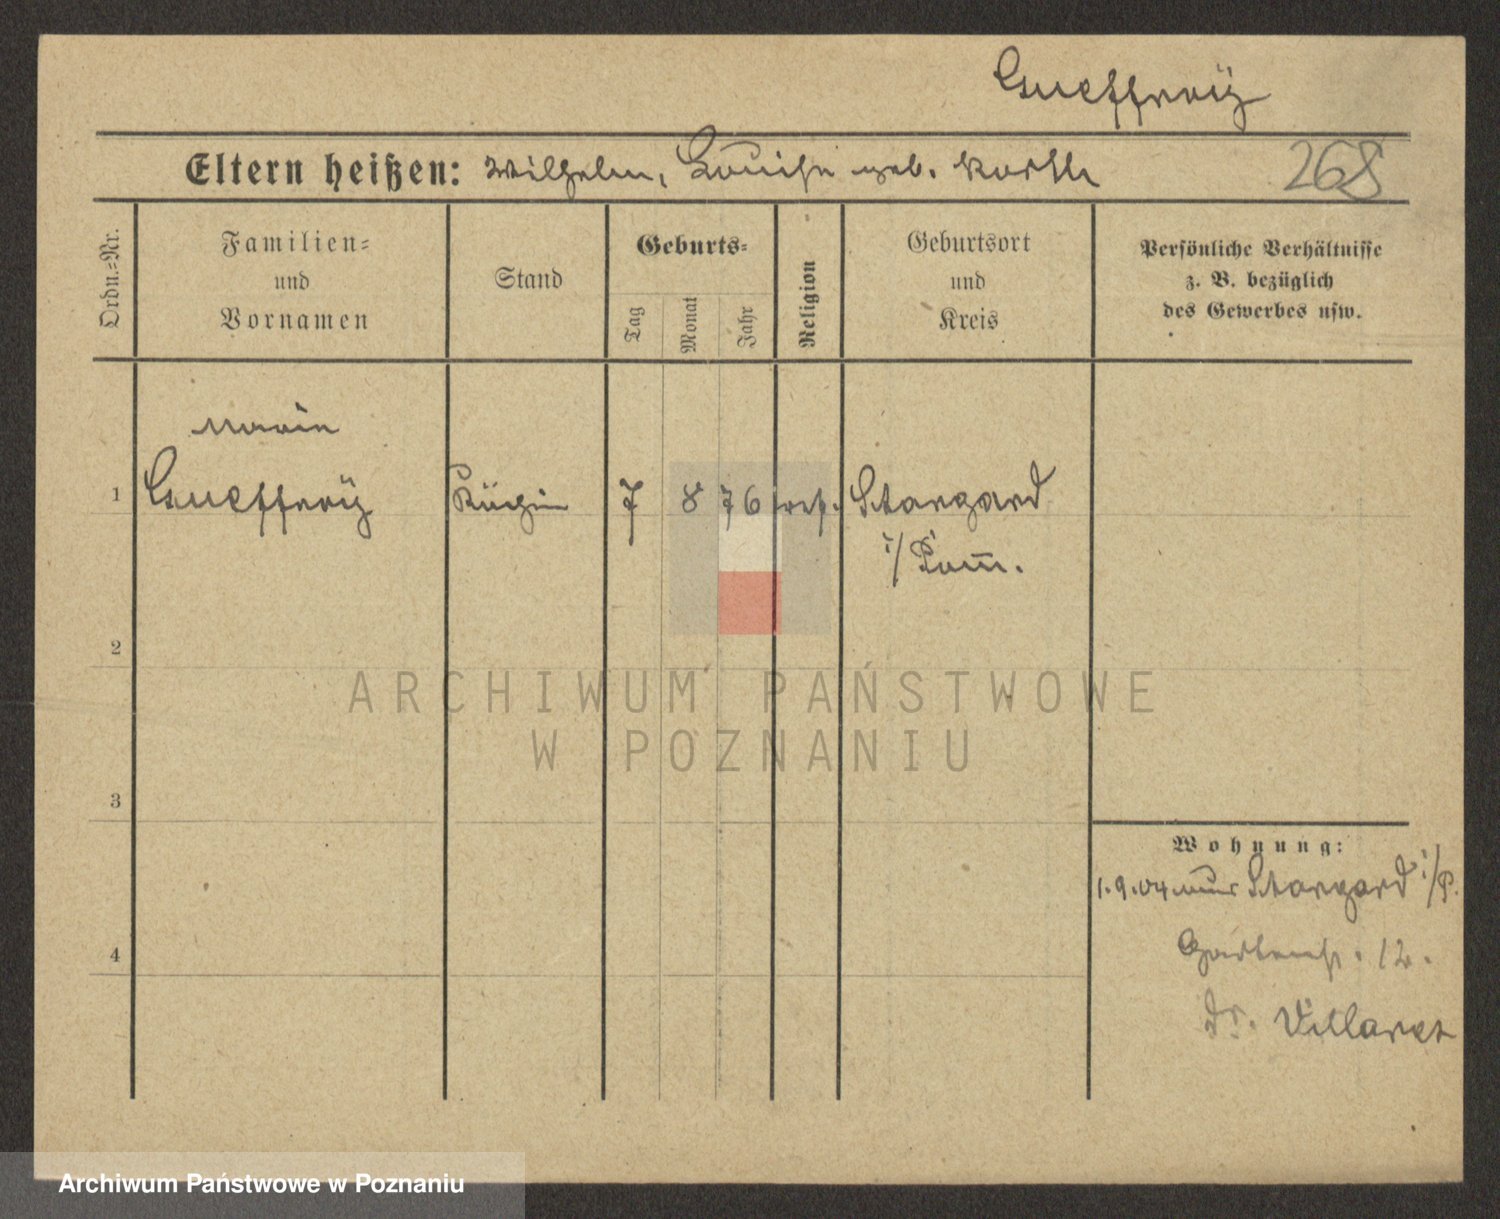 Gueffroÿ
Eltern heißen: Wilhelm, Louise geb. Korth
268
Ordn.=Nr.
Familien=
und
Vornamen
Stand
Geburts=
Tag
Monat
Jahr
Religion
Geburtsort
und
Kreis
Persönliche Verhältnisse
z. B. bezüglich
des Gewerbes usw.
Marie
1 Gueffroÿ Köchin 7 8 76 ref. Stargard
i/ Pom̅.
2
ARCHIWUM PAŃSTWOWE
W POZNANIU
3
Wohnung:
1.9.04 Stargard i/P.
Gartenstr. 12.
Dr. Villaret
4
Archiwum Państwowe w Poznaniu